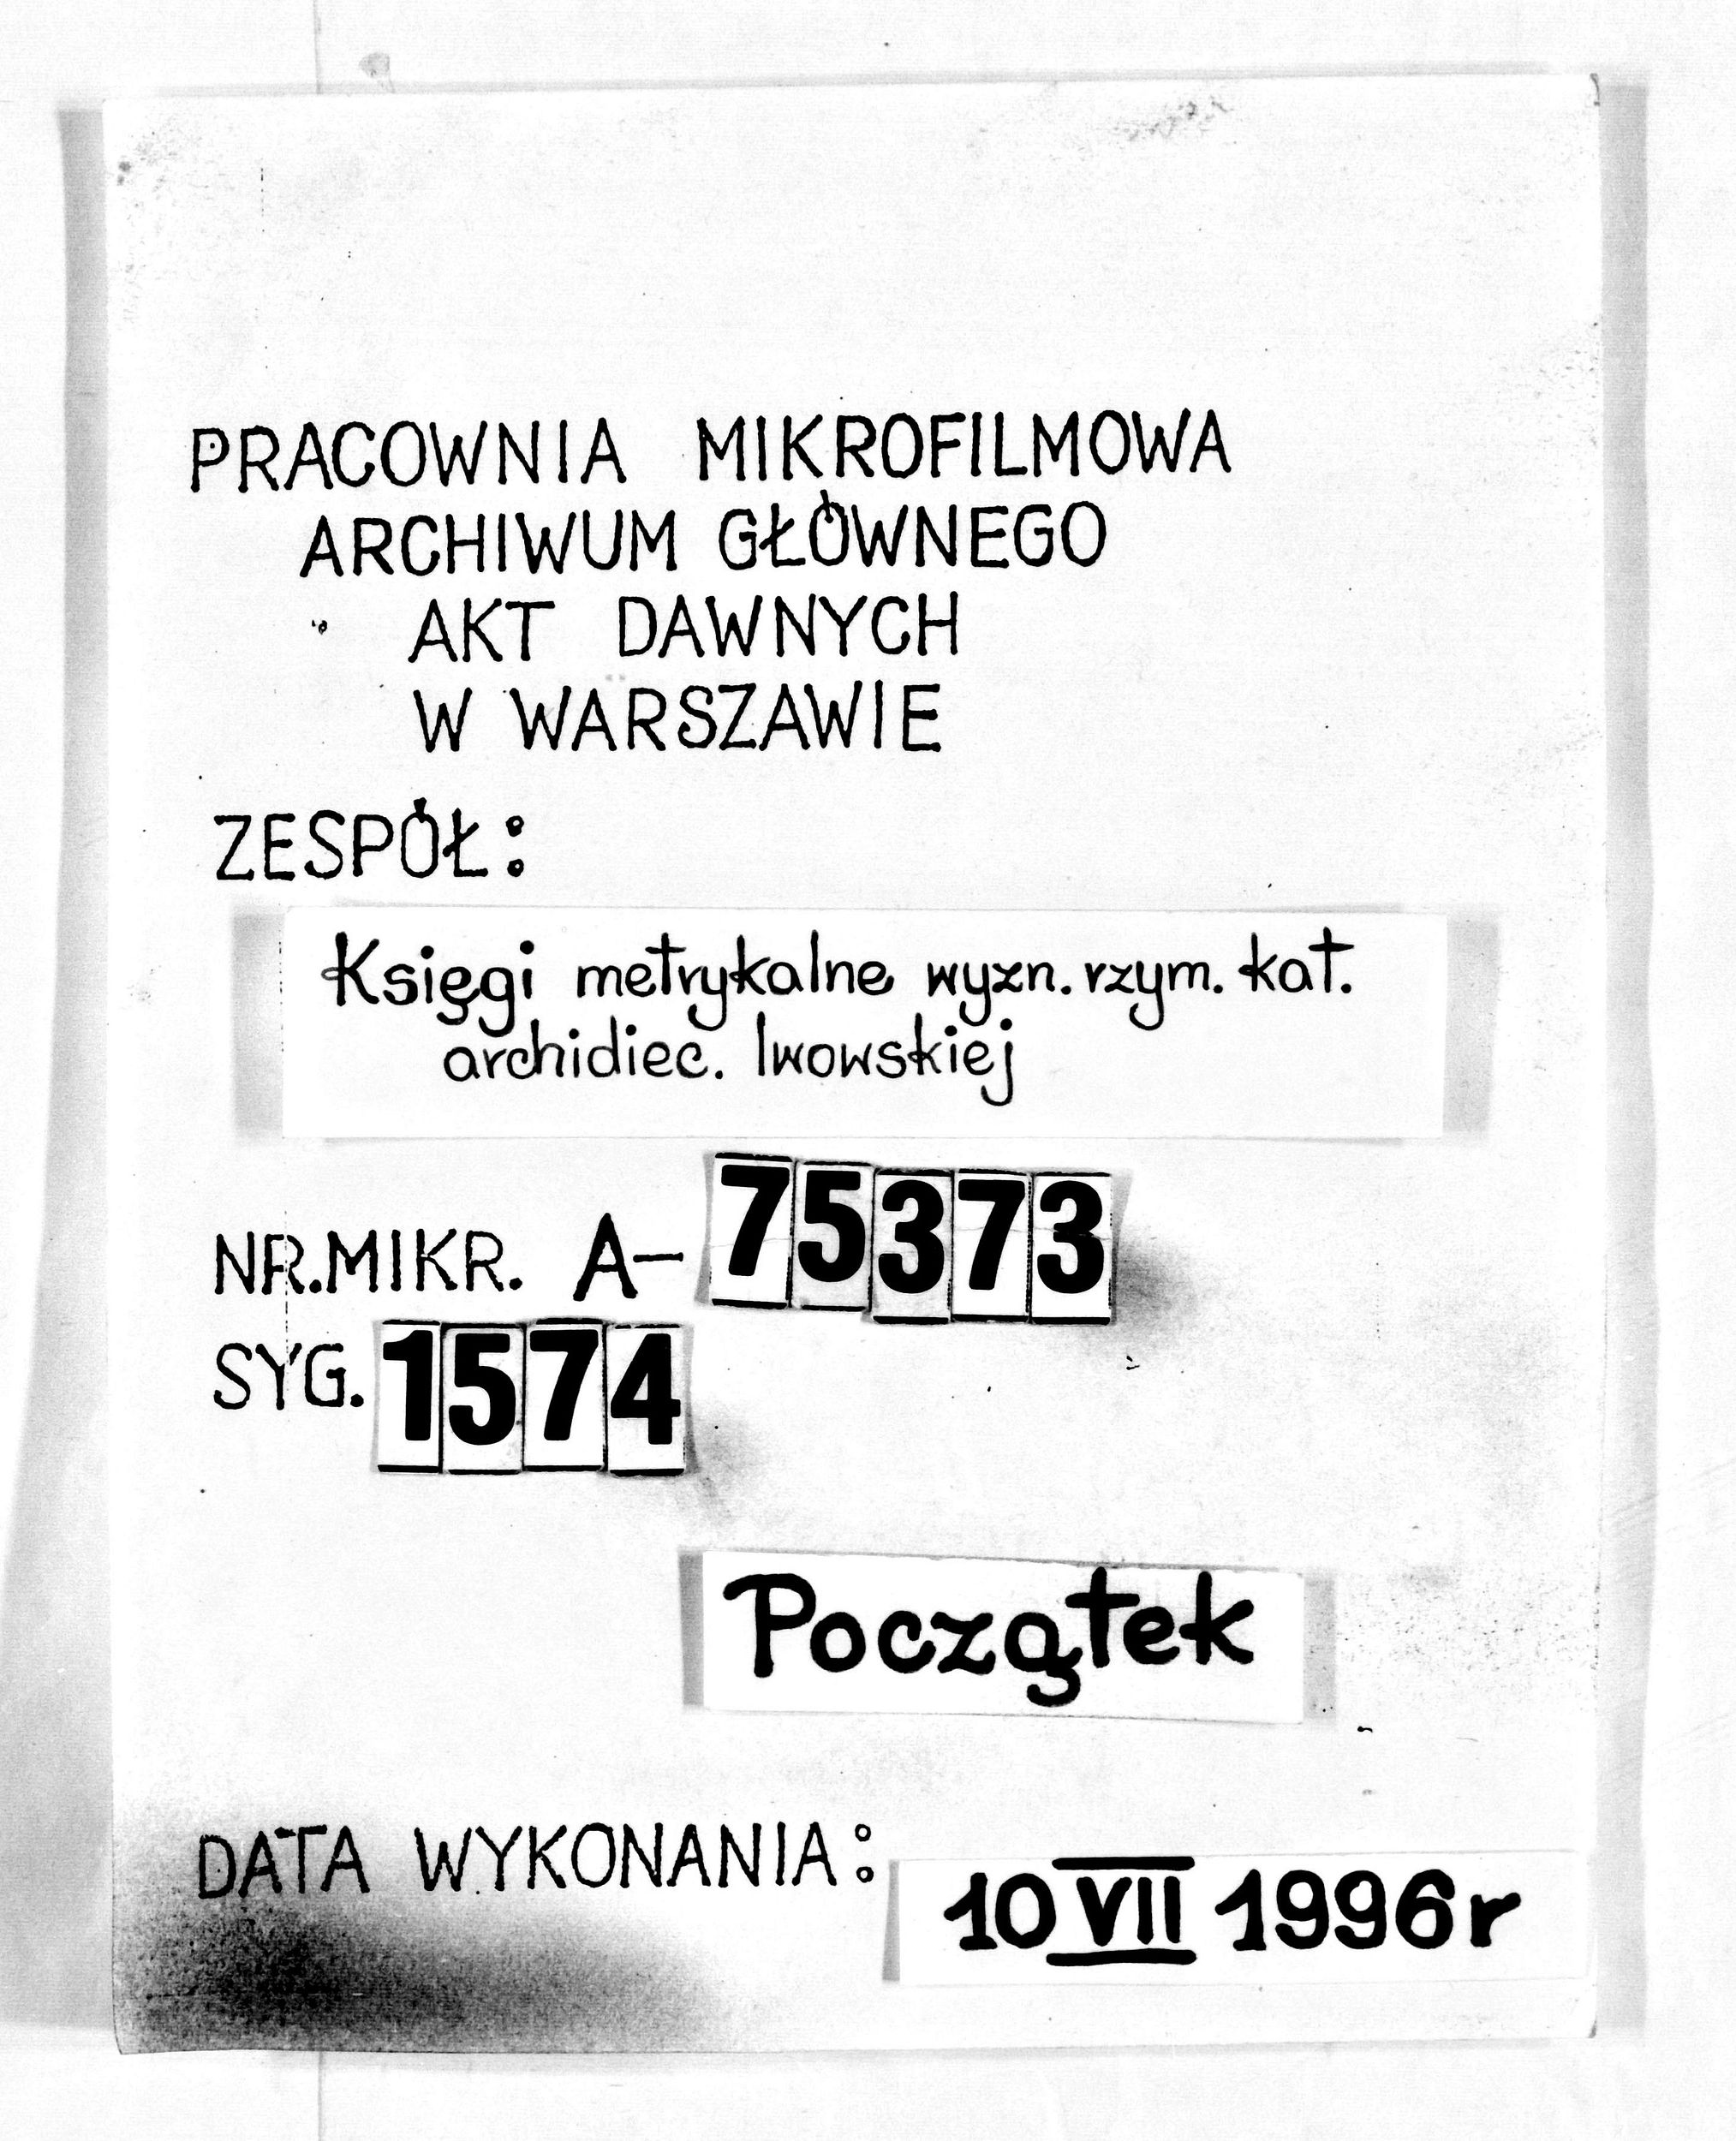 PRACOWNIA MIKROFILMOWA
ARCHIWUM GŁÓWNEGO
AKT DAWNYCH
W WARSZAWIE
ZESPÓŁ:
Księgi metrykalne wyzn. rzym. kat.
archidiec. lwowskiej
NR.MIKR. A- 75373
SYG. 1574
Początek
DATA WYKONANIA: 10 VII 1996r